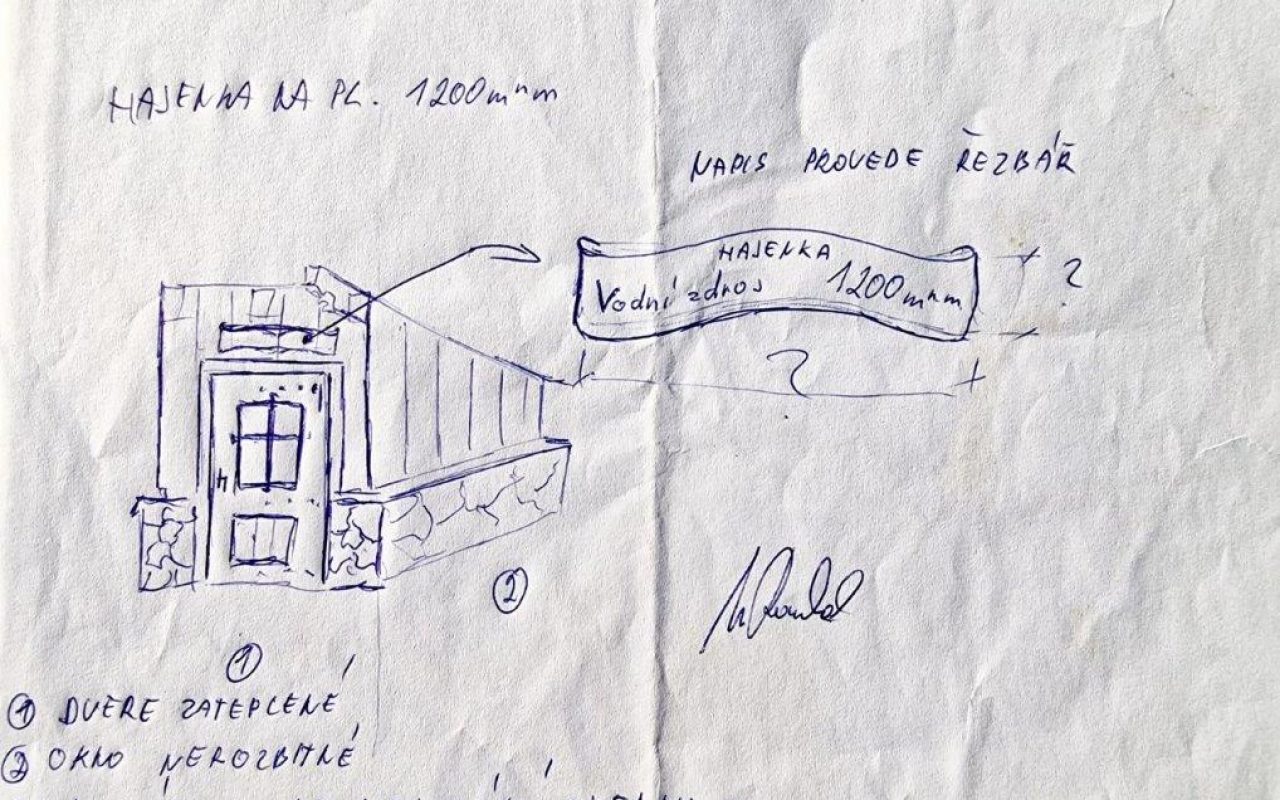 HAJENKA NA PL. 1200 m n m
NAPIS PROVEDE ŘEZBÁŘ
HAJENKA
Vodní zdroj 1200 m n m
?
?
②
①
① DVEŘE ZATEPLENÉ
② OKNO NEROZBITNÉ